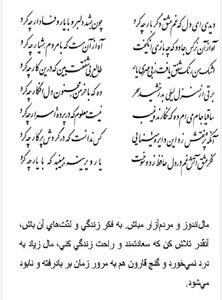 دیدی ای دل که غم عشق دگربار چه کرد چون بشد دلبر و با یار وفادار چه کرد
آه از آن نرگس جادو که چه بازی انگیخت آه از آن مست که با مردم هشیار چه کرد
اشک من رنگ شفق یافت ز بی‌مهری یار طالع بی‌شفقت بین که درین کار چه کرد
برقی از منزل لیلی بدرخشید سحر وه که با خرمن مجنون دل افگار چه کرد
ساقیا جام میم ده که نگارنده غیب نیست معلوم که در پرده اسرار چه کرد
آنکه پرنقش زد این دایره مینایی کس ندانست که در گردش پرگار چه کرد
فکر عشق آتش غم در دل حافظ زد و سوخت یار دیرینه ببینید که با یار چه کرد
مال‌اندوز و مردم‌آزار مباش. به فکر زندگي و لذّت‌هاي آن باش،
آنقدر تلاش کن که سعادتمند و راحت زندگي کني، مال زياد به
درد نمي‌خورد و گنج قارون هم به مرور زمان بر بادرفته و نابود
مي‌شود